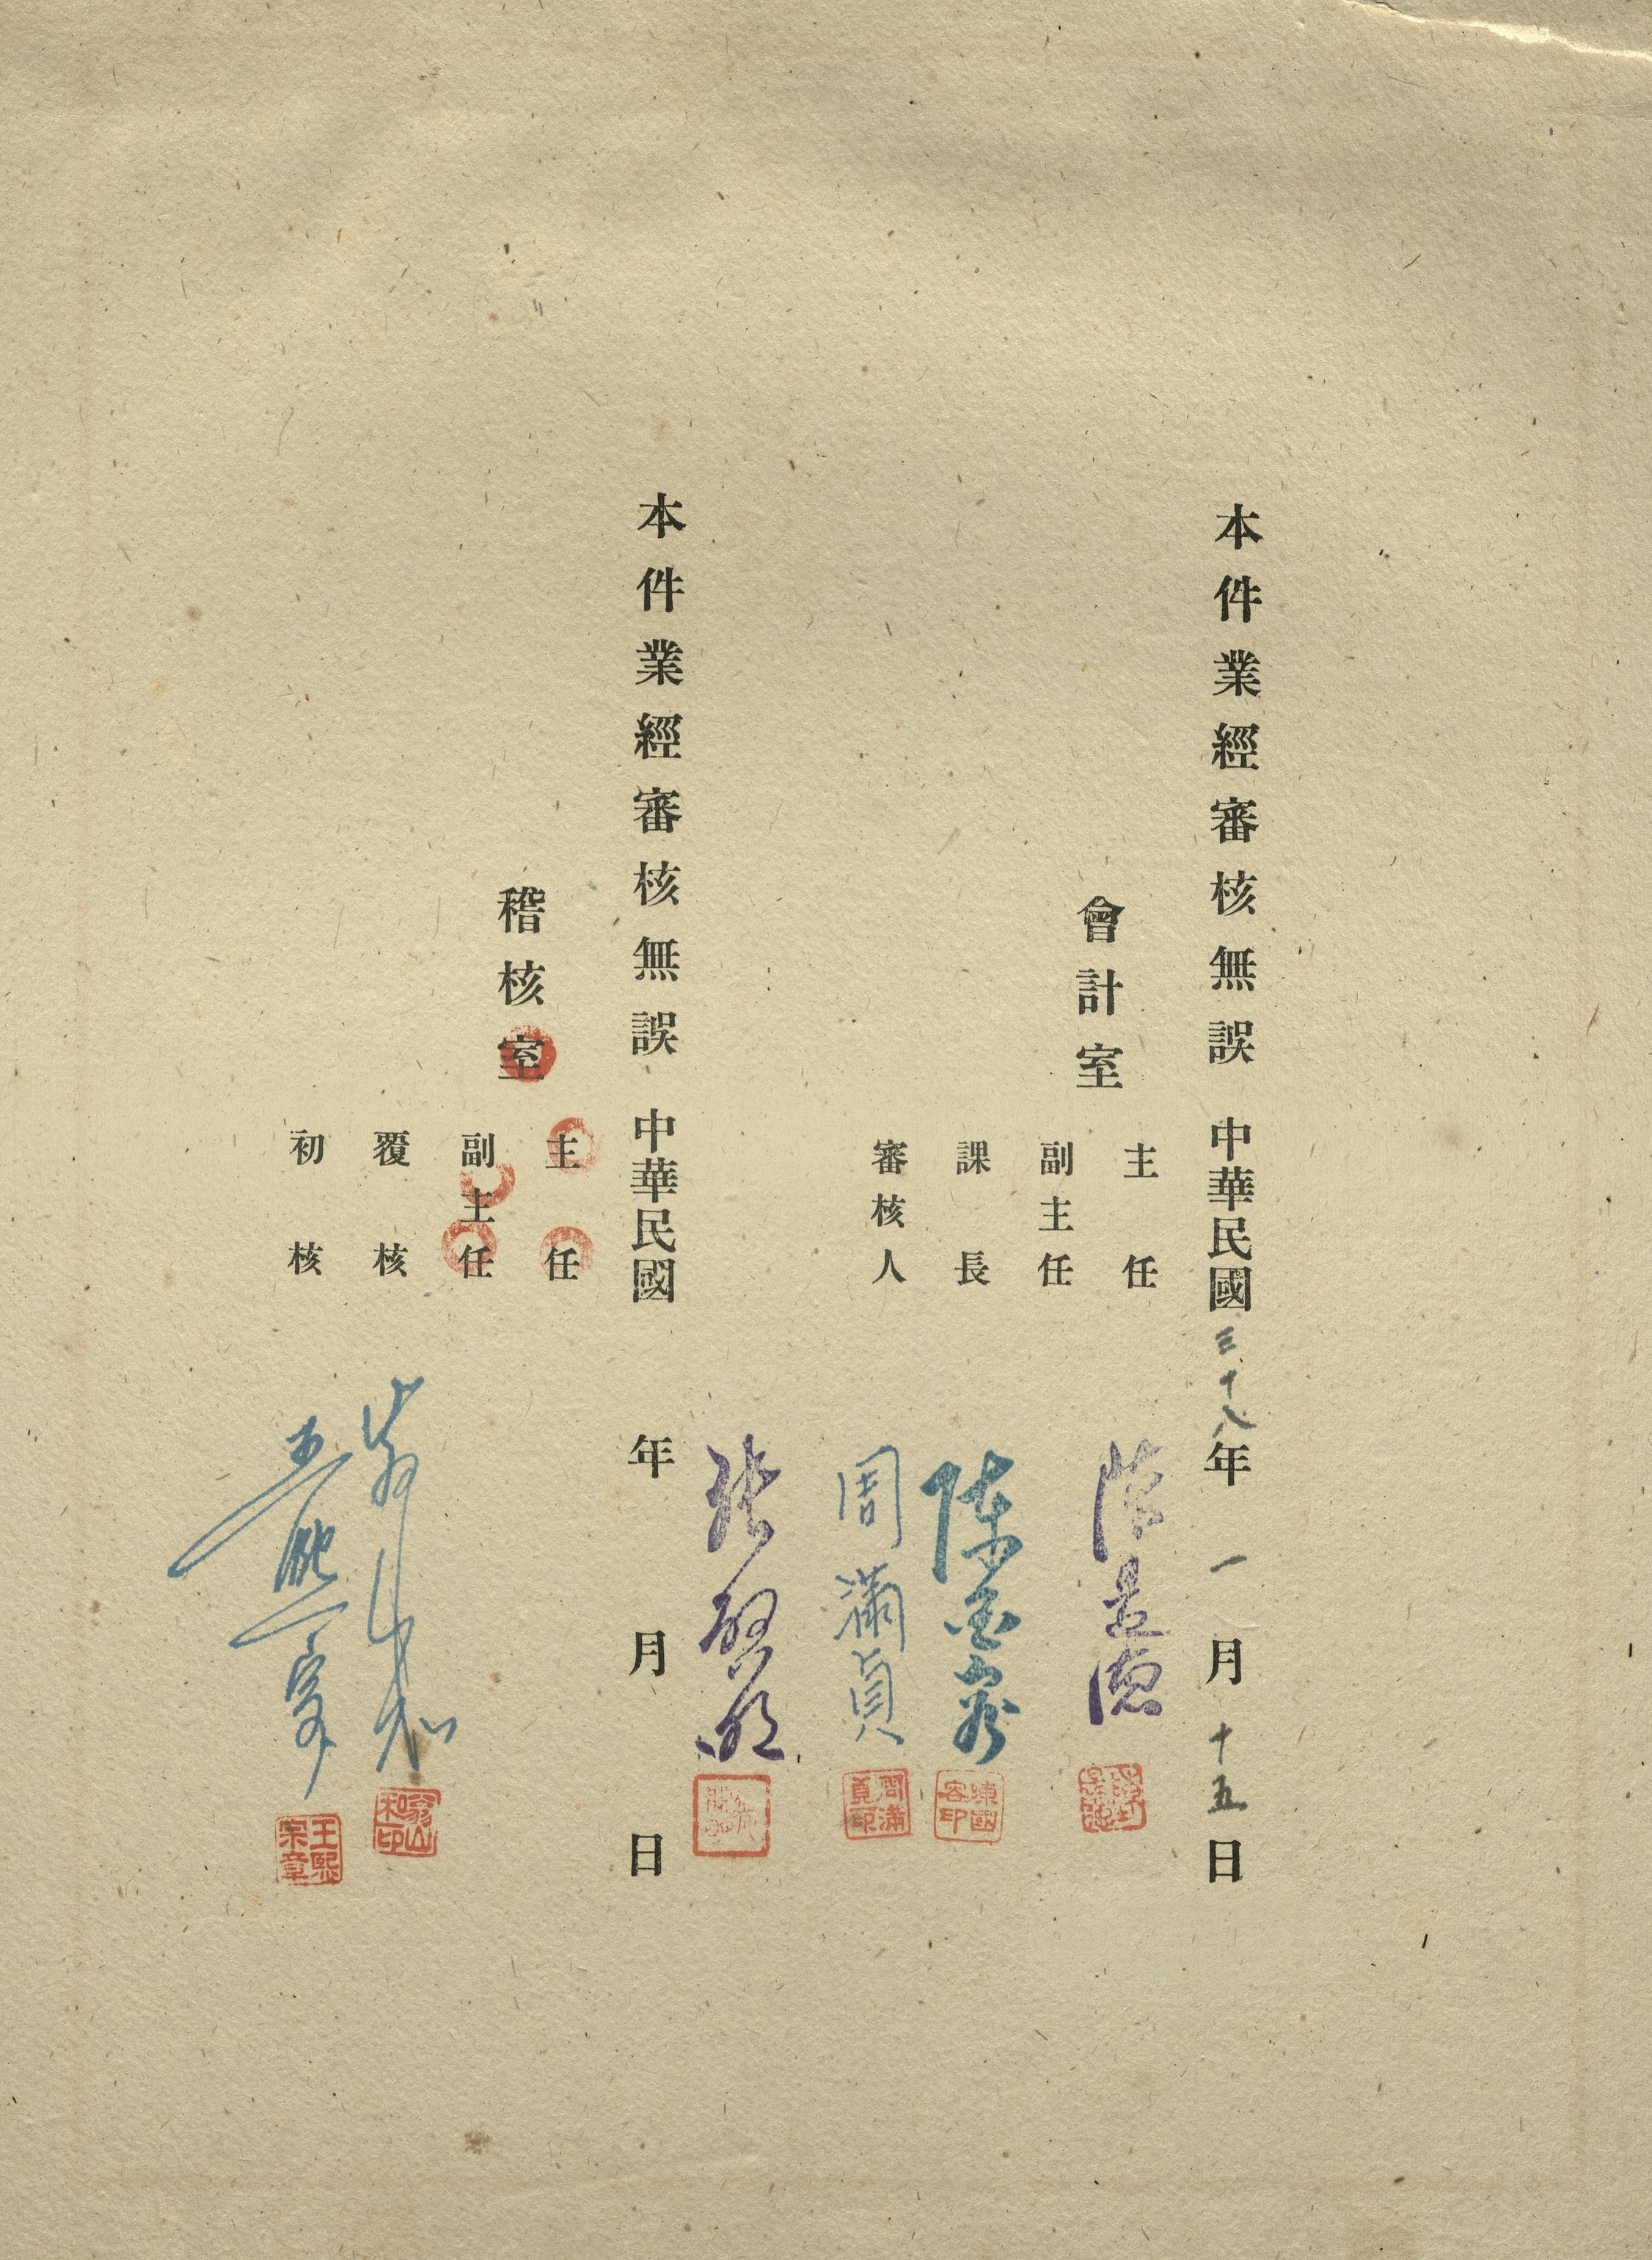 本件業經審核無誤 中華民國三十八年一月十五日
會計室
主任
副主任
課長 陳國容
陳國容印
審核人 周滿貞
周滿貞印
本件業經審核無誤 中華民國 年 月 日
稽核室
主任
副主任
覆核 翁山和
翁山和印
初核 王熙宗
王熙宗章